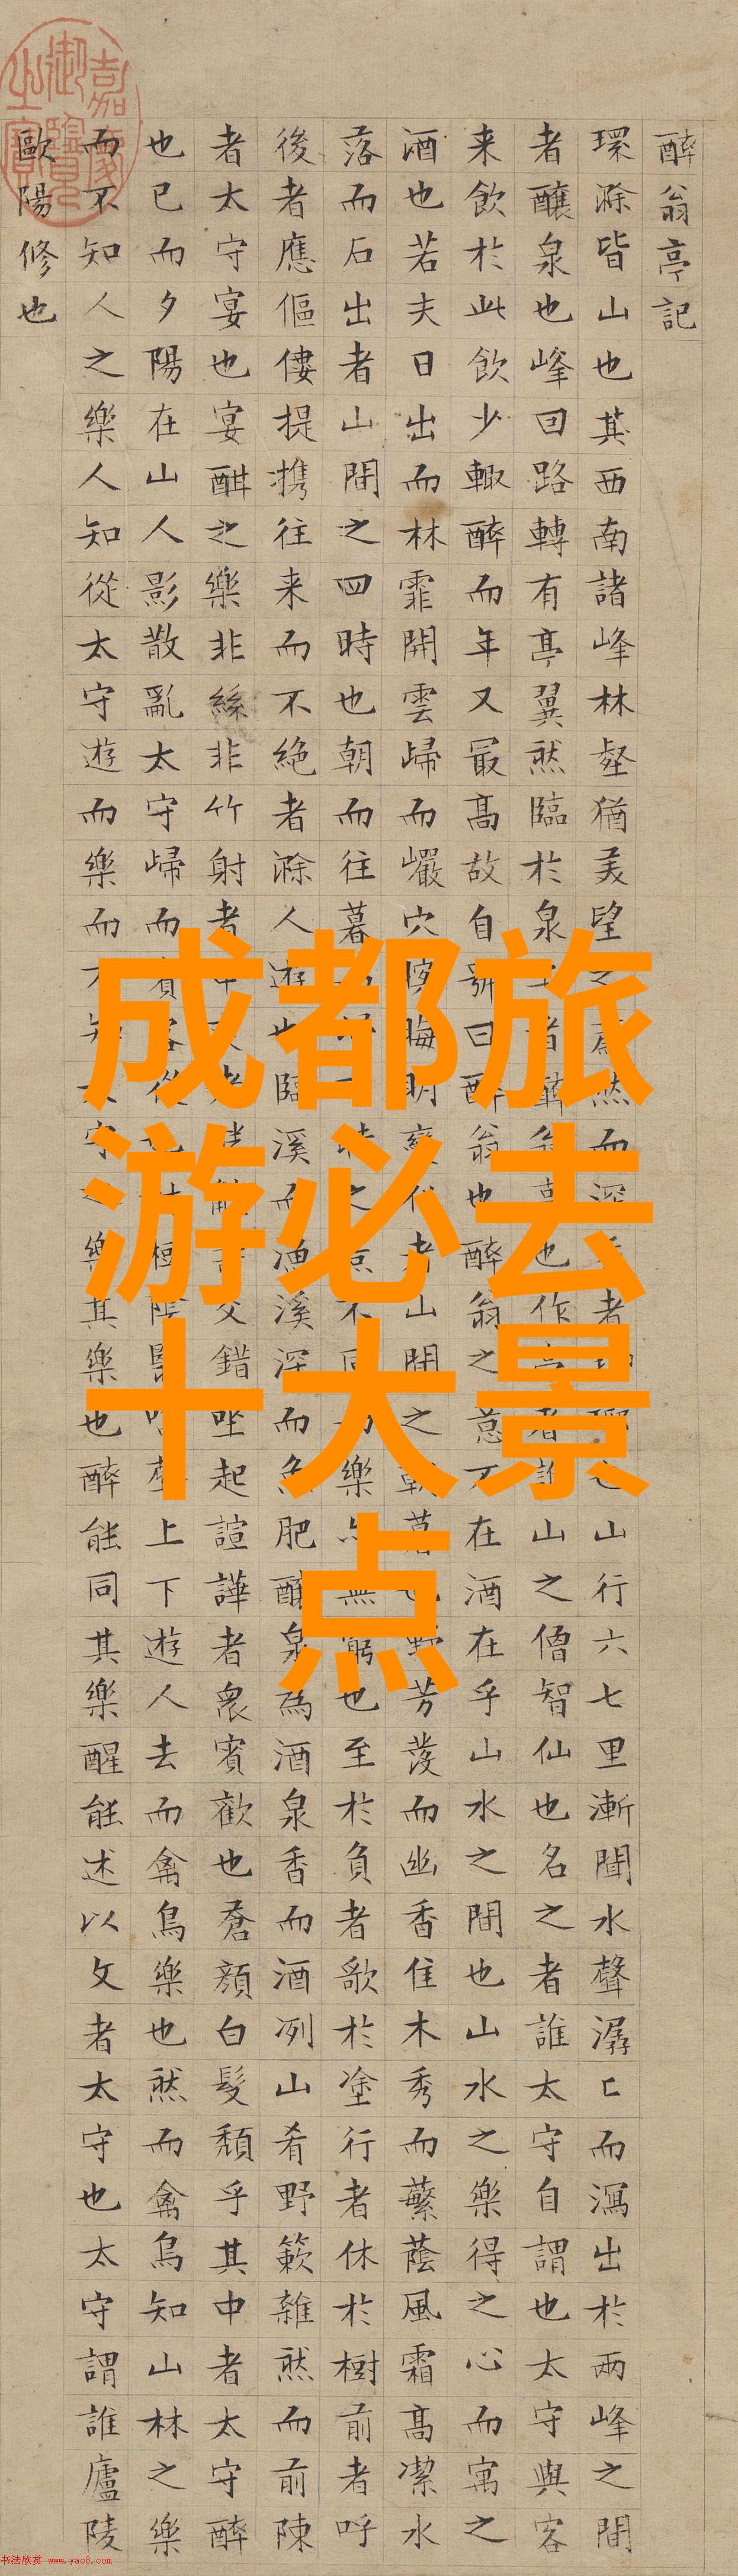 醉翁亭記
環滁皆山也其西南諸峰林壑猶美望之蔚然而深者山行六七里漸聞水聲潺〻而瀉出於兩峰之間
者釀泉也峰回路轉有亭翼然臨於泉者翁也作者山之僧智仙也名之者誰太守自謂也太守與客
来飲於此飲少輒醉而年又最高故自號曰醉翁也醉翁之意不在酒在乎山水之間也山水之樂得之心而寓之
酒也若夫日出而林霏開雲歸而巖穴暝晦明變化者山間之朝暮也野芳發而幽香佳木秀而蘩蔭風霜高潔水
落而石出者山間之四時也朝而往暮之景不同樂無窮也至於負者歌於塗行者休於樹前者呼
後者應傴僂提攜往来而不絶者滁人遊也臨溪而漁溪深而魚肥釀泉為酒泉香而酒冽山肴野蔌雜然而前陳
者太守宴也宴酣之樂非絲非竹射者中交錯坐起諠譁者衆賓歡也蒼顏白髮頹乎其中者太守醉
也已而夕陽在山人影散亂太守歸而賓客從陰翳聲上下遊人去而禽鳥樂也然而禽鳥知山林之樂
而不知人之樂人知從太守遊而樂而不知守樂其樂也醉能同其樂醒能述以文者太守也太守謂誰廬陵
歐陽修也
嘉慶御覽之寶
成都旅
游必去
十大景
点
书法欣赏 www.yac8.com